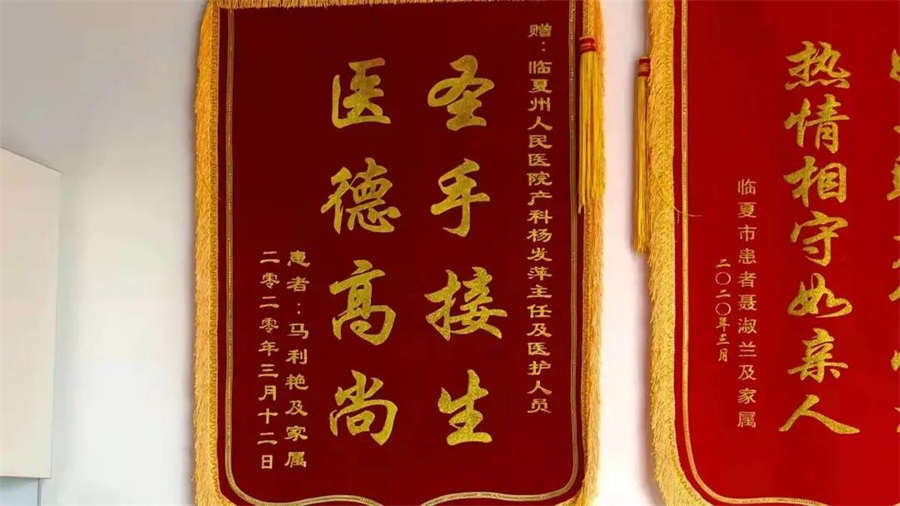 赠：临夏州人民医院产科杨发萍主任及医护人员
圣手接生
医德高尚
患者：马利艳及家属
二零二零年三月十二日
热情相守如亲人
临夏市患者聂淑兰及家属
二〇二〇年三月